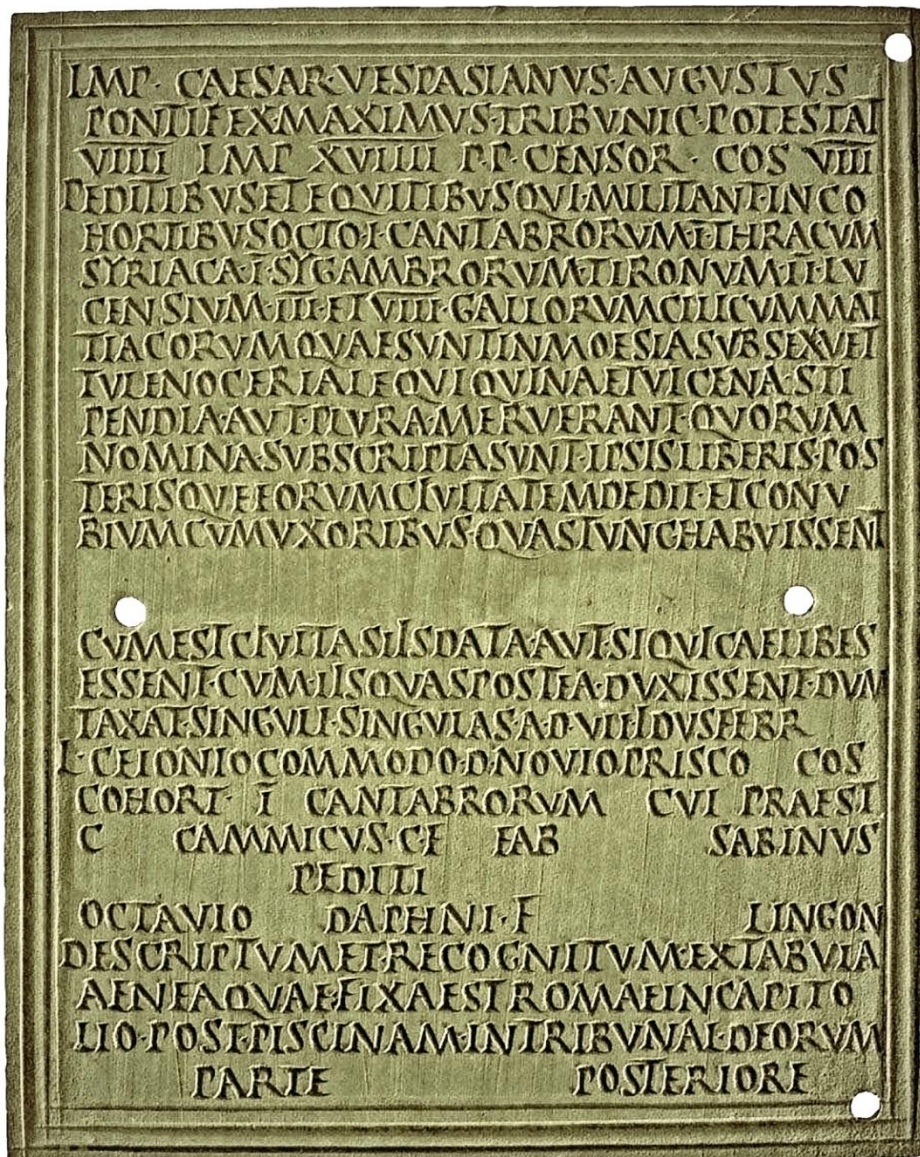 IMP · CAESAR · VESPASIANVS · AVGVSTVS
PONTIFEX · MAXIMVS · TRIBVNIC · POTESTAT
VIIII IMP XVIIII P · P · CENSOR · COS VIIII
PEDITIBVS ET EQVITIBVS QVI · MILITANT · IN CO
HORTIBVS OCTO · I · CANTABRORVM · I · THRACVM
SYRIACA · I · SYGAMBRORVM · TIRONVM · II · LV
CENSIVM · III · ET VIIII · GALLORVM CILICVM MAT
TIACORVM QVAE SVNT IN MOESIA SVB SEX VET
TVLENO CERIALE QVI QVINA ET VICENA · STI
PENDIA · AVT · PLVRA · MERVERANT · QVORVM
NOMINA · SVBSCRIPTA SVNT · IPSIS LIBERIS · POS
TERISQVE EORVM CIVITATEM DEDIT · ET CONV
BIVM CVM VXORIBVS · QVAS TVNC HABVISSENT
CVM EST CIVITAS IIS DATA · AVT · SI QVI CAELIBES
ESSENT · CVM · IIS QVAS POSTEA · DVXISSENT · DVM
TAXAT · SINGVLI · SINGVLAS · A · D · VII IDVS FEBR
L · CEIONIO COMMODO · D · NOVIO PRISCO COS
COHORT · I CANTABRORVM CVI PRAEST
C CAMMICVS · C F FAB SABINVS
PEDITI
OCTAVIO DAPHNI · F LINGON
DESCRIPTVM ET · RECOGNITVM · EX TABVLA
AENEA QVAE · FIXA EST ROMAE IN CAPITO
LIO · POST · PISCINAM · IN TRIBVNAL · DEORVM
PARTE POSTERIORE